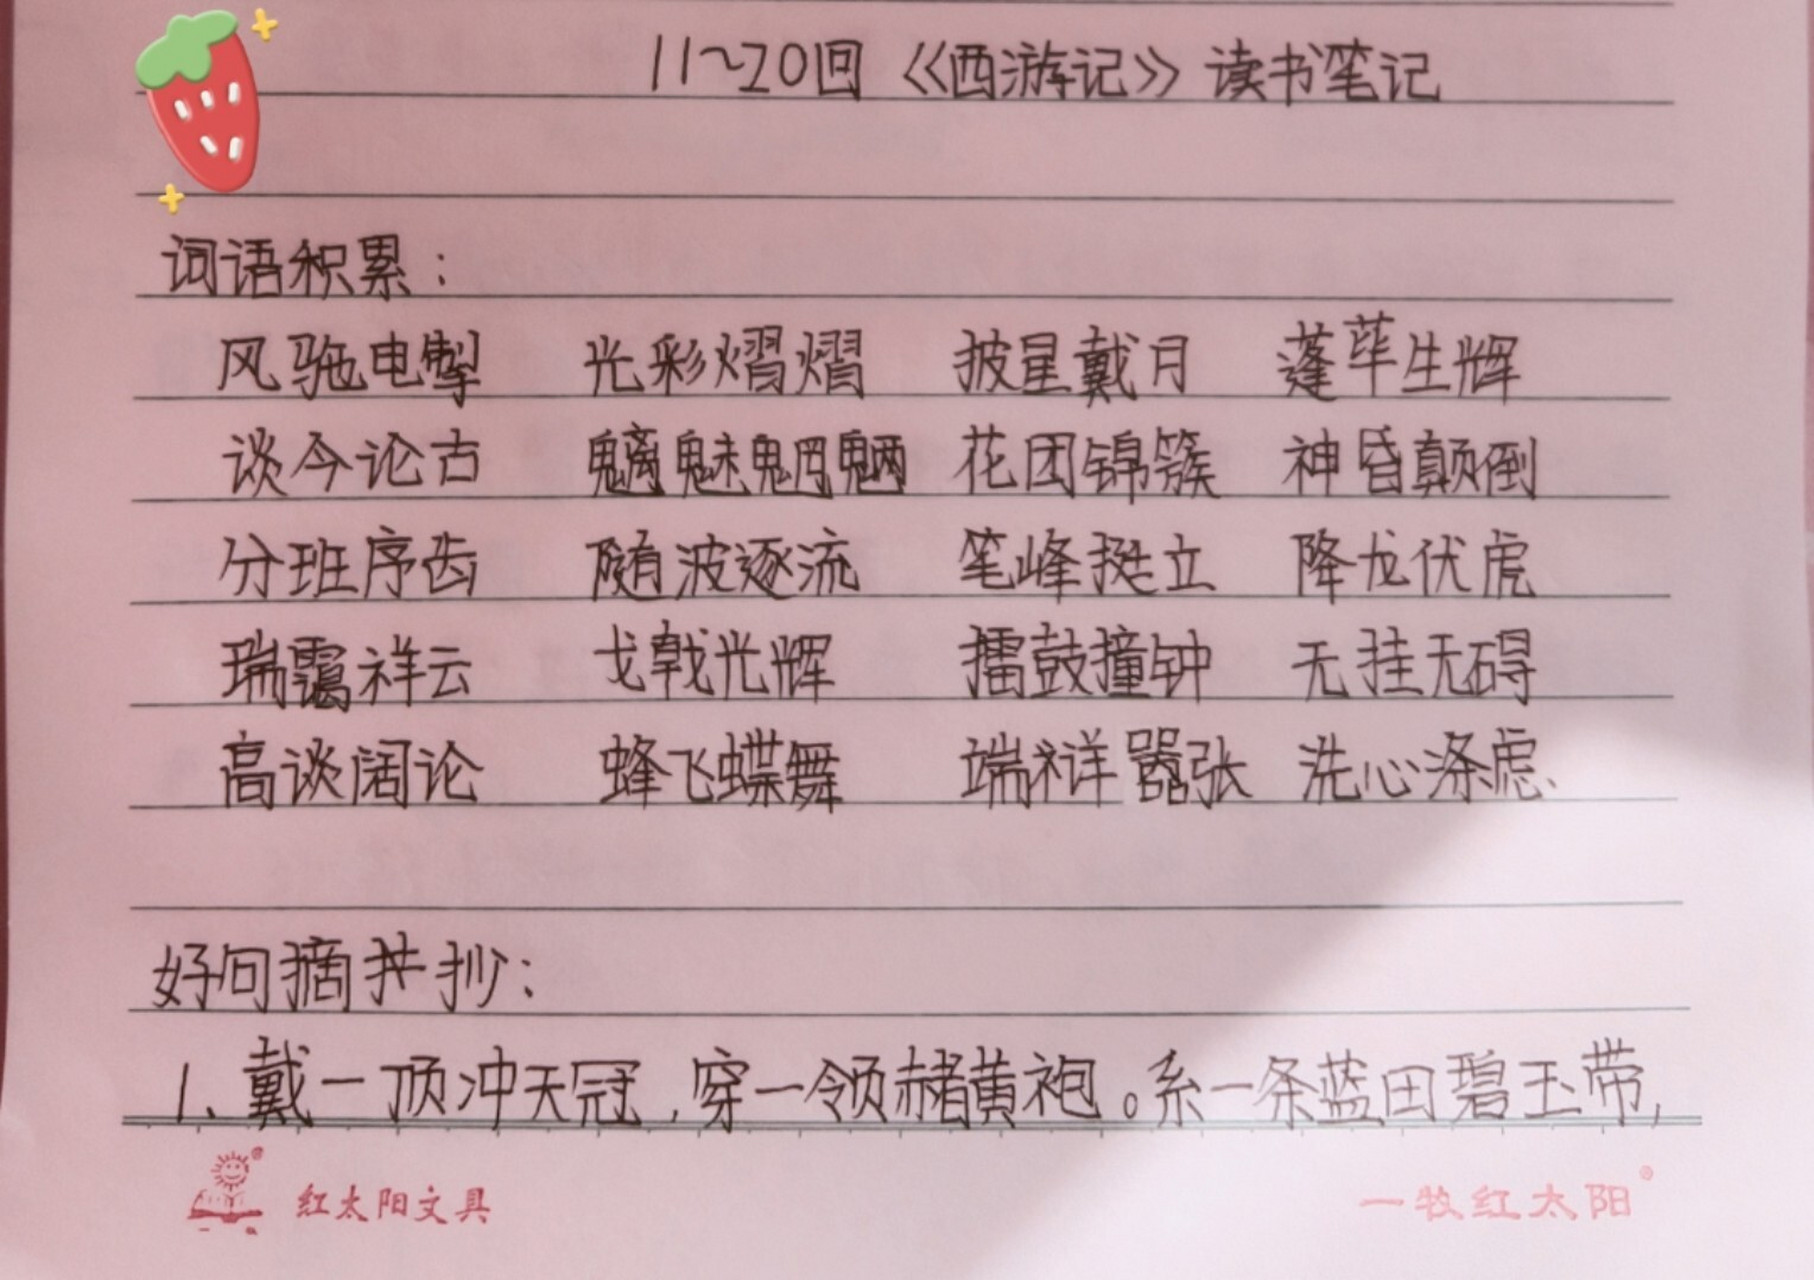 11~20回《西游记》读书笔记
词语积累：
风驰电掣 光彩熠熠 披星戴月 蓬荜生辉
谈今论古 魑魅魍魉 花团锦簇 神昏颠倒
分班序齿 随波逐流 笔峰挺立 降龙伏虎
瑞霭祥云 戈戟光辉 擂鼓撞钟 无挂无碍
高谈阔论 蜂飞蝶舞 端祥嚣张 洗心涤虑、
好句摘抄：
1、戴一顶冲天冠，穿一领赭黄袍。系一条蓝田碧玉带，
红太阳文具
一牧红太阳